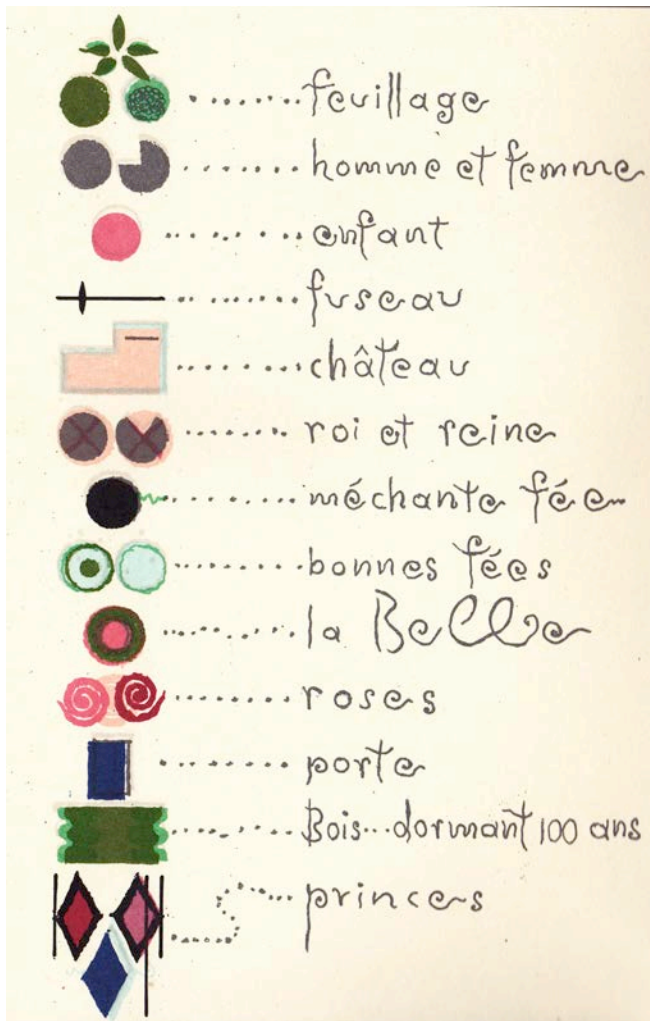 feuillage
homme et femme
enfant
fuseau
château
roi et reine
méchante fée
bonnes fées
la Belle
roses
porte
Bois...dormant 100 ans
princes